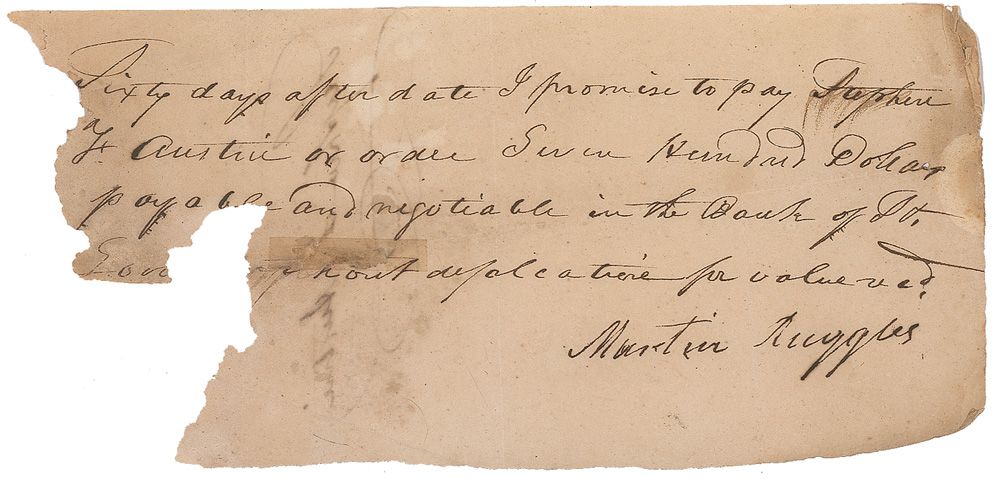 Sixty days after date I promise to pay Stephen
F. Austin or order Seven Hundred Dollars
payable and negotiable in the Bank of St.
Louis without defalcation for value recd.
Martin Ruggles